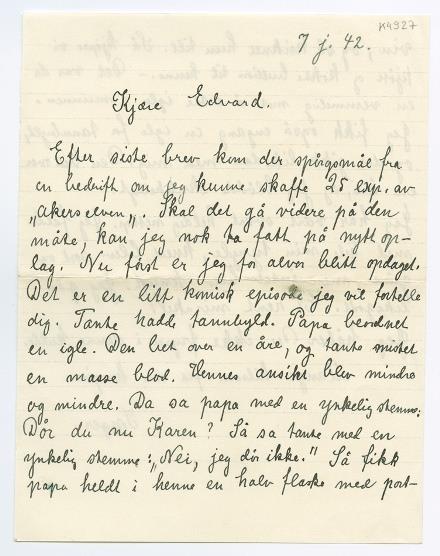 K4927
7 j. 42.
Kjære Edvard.
Efter siste brev kom der spörgsmål fra
en bedrift om jeg kunne skaffe 25 exp. av
„akerselven„. Skal det gå videre på den
måte, kan jeg nok ta fatt på nytt op-
lag. Nu först er jeg for alvor blitt opdaget.
Det er en litt komisk episode jeg vil fortelle
dig. Tante hadde tannbyld. Papa beordret
en igle. Den bet over en åre, og tante mistet
en masse blod. Hennes ansikt blev mindre
og mindre. Da sa papa med en ynkelig stemme:
Dör du nu Karen? Så sa tante med en
ynkelig stemme: „Nei, jeg dör ikke." Så fikk
papa heldt i henne en halv flaske med port-